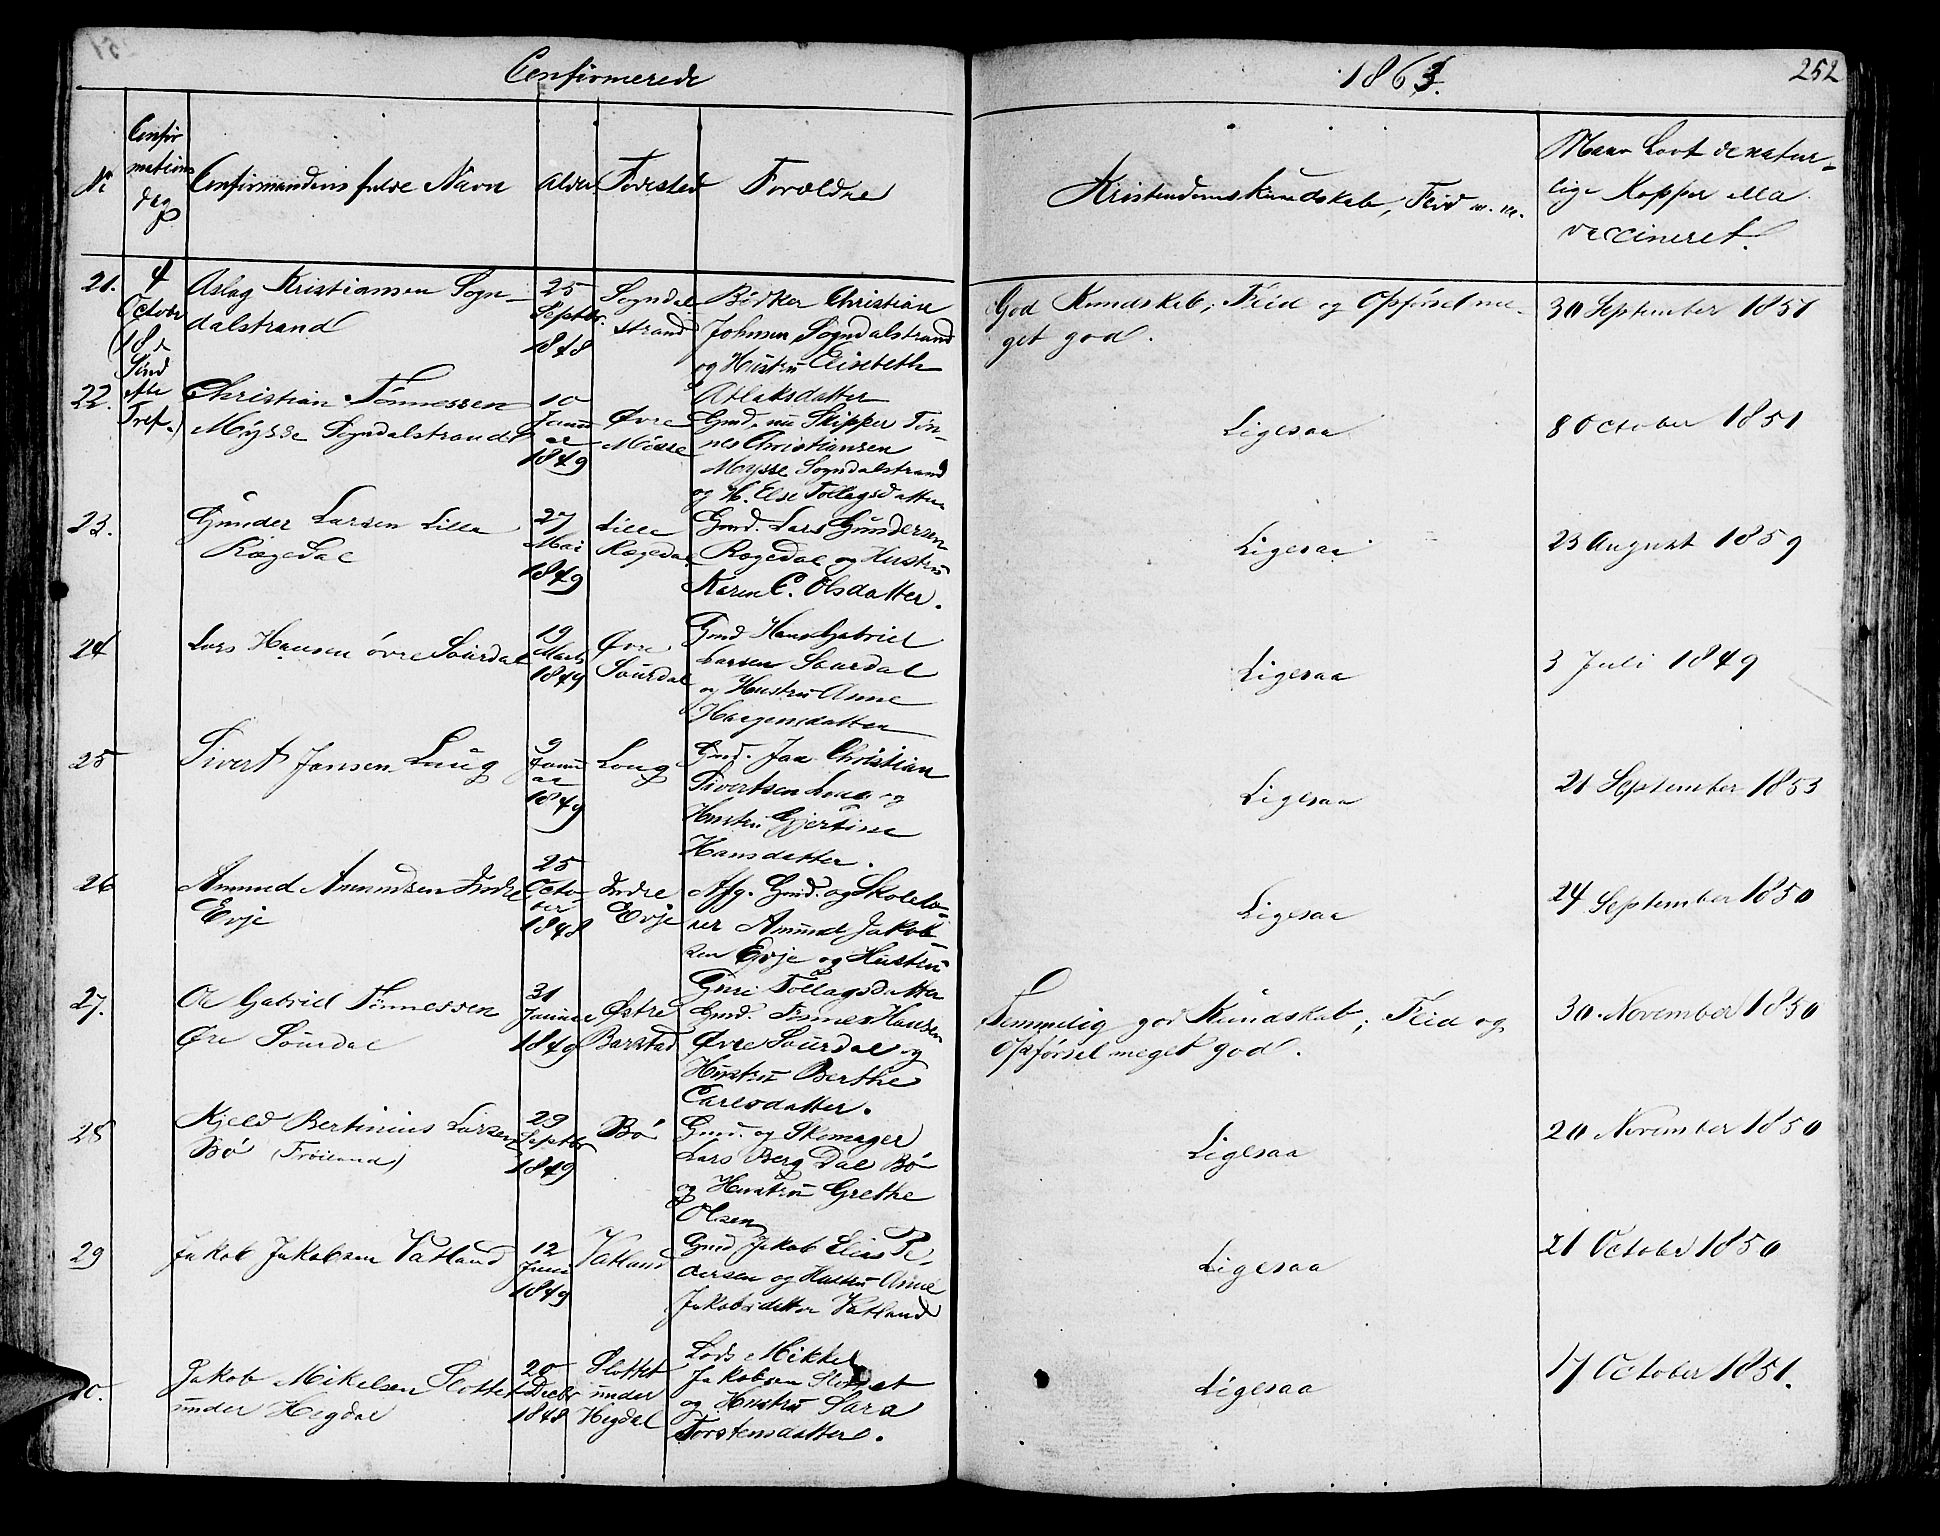 Confirmerede
1863.
252
No
Confir
mations
dag
Confirmandens fulde Navn
Alder
Fødested
Forældre
Kristendoms Kundskab, Flid m. m.
Naar havt de natur-
lige Kopper ella
vaccineret.
21.
4
October
(18 de
Sønd
efter
Tref.)
Aslag Kristiansen Sogn-
dalstrand
25
Septbr.
1848
Sogndal
strand
Bødker Christian
Johnsen Sogndalstrand
og Hustru Elisabeth
Atlaksdatter
God Kundskab; Flid og Opførsel me-
get god.
30 September 1851
22.
Christian Tønnessen
Mysse Sogndalstrand
10
Janu
ar
1849
Øvre
Mysse
Gmd. nu Skipper Tøn-
nes Christiansen
Mysse Sogndalstrand
og H. Else Tollagsdatter
Ligesaa
8 October 1851
23.
Gunder Larsen Lille
Rægedal
27
Mai
1849
Lille
Rægedal
Gmd. Lars Gundersen
Rægedal og Hustru
Karen C. Olsdatter.
Ligesaa
23 August 1859
24
Lars Hansen øvre Saurdal
19
Marts
1849
Øvre
Saurdal
Gmd Hans Gabriel
Larsen Saurdal
og Hustru Anne
Haagensdatter
Ligesaa
3 Juli 1849
25
Sivert Jansen Loug
9
Janu
ar
1849
Loug
Gmd. Jan Christian
Sivertsen Loug og
Hustru Gjertine
Hansdatter.
Ligesaa
21 September 1853
26
Amund Amundsen Indre
Evje
25
Octo-
ber
1848
Indre
Evje
Afg. Gmd. og Skolelæ-
rer Amund Jakob-
sen Evje og Hustru
Guri Tollagsdatter
Ligesaa
24 September 1850
27.
Ole Gabriel Tønnessen
Øvre Saurdal
31
Januar
1849
Østre
Barstad
Gmd. Tønnes Hansen
Øvre Saurdal og
Hustru Berthe
Carlsdatter.
Temmelig god Kundskab; Flid og
Opførsel meget god.
30 November 1850
28
Kjeld Bertinius Larsen
Bø (Frøiland)
29
Septbr
1849
Bø
Gmd. og Skomager
Lars Berg Dal Bø
og Hustru Grethe
Olsen
Ligesaa
20 November 1850
29
Jakob Jakobsen Vatland
12
Juni
1849
Vatland
Gmd Jakob Elias Pe-
dersen og Hustru Anne
Jakobsdatter Vatland
Ligesaa
21 October 1850
30.
Jakob Mikelsen Slottet
under Hegdal
20
Decbr
1848
Slottet
under
Hegdal
Lods Mikkel
Jakobsen Slottet
og Hustru Sara
Torstensdatter.
Ligesaa
17 October 1851.